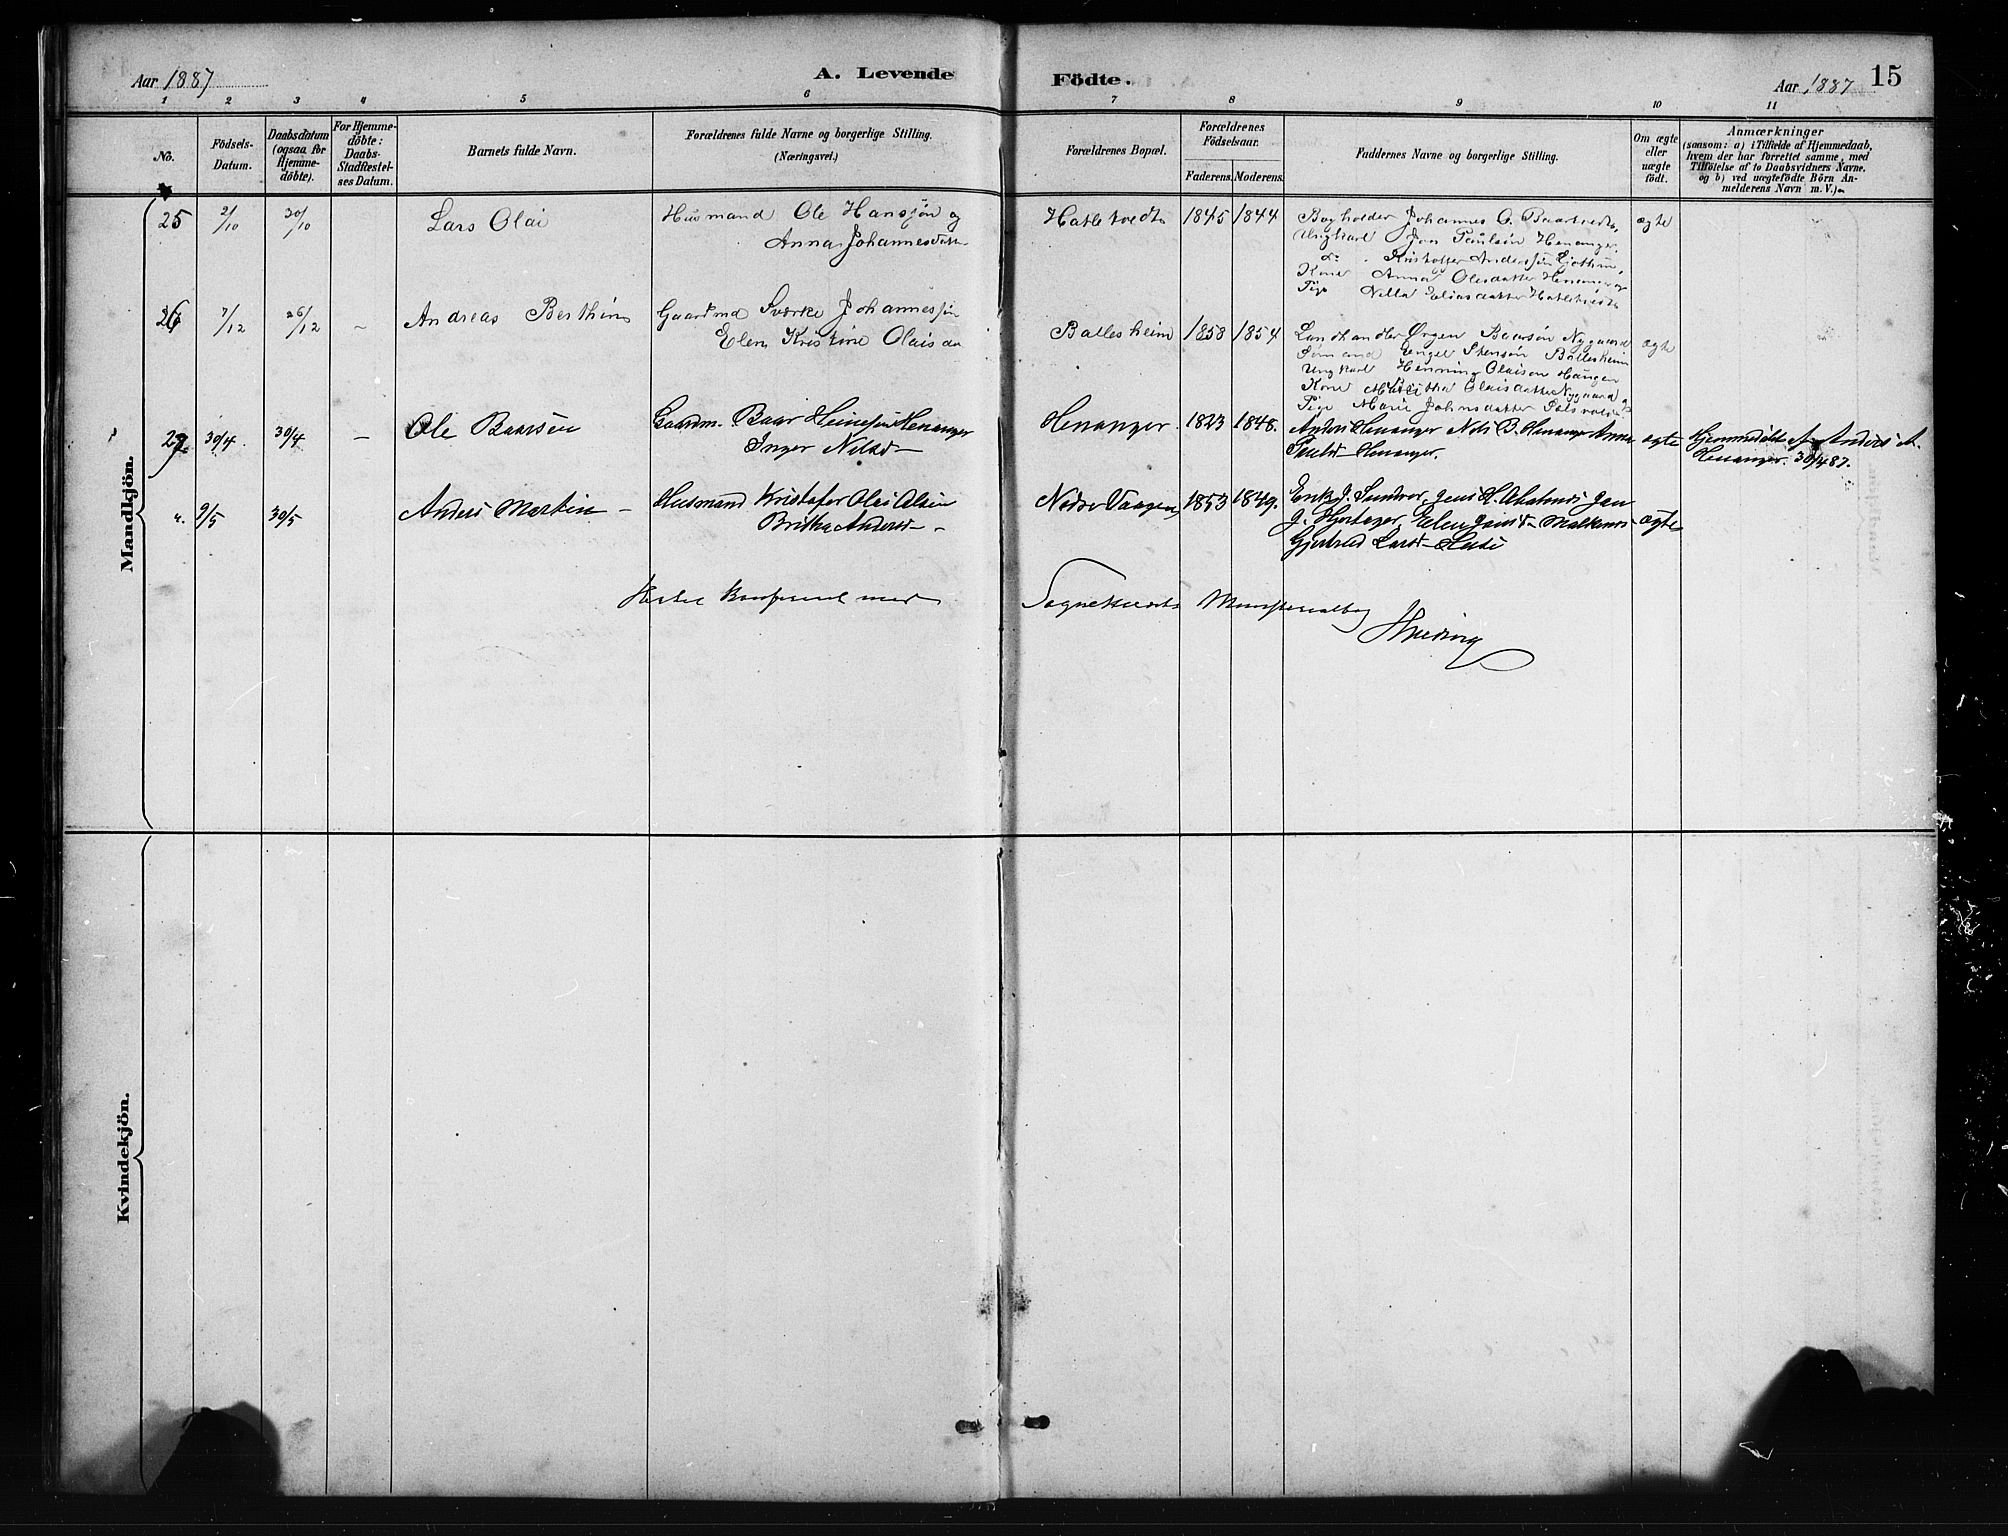 Aar 1887
A. Levende Födte.
Aar 1887
15
1 2 3 4 5 6 7 8 9 10 11
No.
Födsels-
Datum.
Daabsdatum
(ogsaa for
Hjemme-
döbte).
For Hjemme-
döbte:
Daabs-
Stadfæstel-
ses Datum.
Barnets fulde Navn.
Forældrenes fulde Navne og borgerlige Stilling.
(Næringsvei.)
Forældrenes Bopæl.
Forældrenes
Födselsaar.
Faderens. Moderens.
Faddernes Navne og borgerlige Stilling.
Om ægte
eller
uægte
födt.
Anmærkninger
(saasom: a) i Tilfælde af Hjemmedaab,
hvem der har forrettet samme, med
Tilföielse af to Daabsvidners Navne,
og b) ved uægtefödte Börn An-
melderens Navn m. V.)
Mandkjön.
25 2/10 30/10 Lars Olai
Husmand Ole Hansjön og
Anna Johannesdatter
Hatletvedt 1845 1844
Bogholder Johannes O. Baartvedt,
Ungkarl Jon Paulsön Henanger,
do. Kristoffer Anderssön
Kone Anna Olesdatter Henanger og
Pige Nilla Eliasdatter Hatletvedt
ægte
26 7/12 26/12 – Andreas Berthin
Gaardmd Sverke Johannessön
Elen Kristine Olaisda
Ballesheim 1858 1854
Landhandler Ørgen Baarsön Nygaard
Sömand Engel Stensön Ballesheim
Ungkarl Henning Olaison Haugen
Kone Olaisdatter Nygaard og
Pige Marie Johnsdatter
ægte
27 30/4. 30/4 – Ole Baarsen
Gaardm. Baar Heinesön Henanger
Inger Nilsd–
Henanger. 1823 1848.
Anders Henanger Nils B. Henanger Anna
Paulsd– Henanger.
ægte
Hjemmedöbt af Anders A.
Henanger. 30/4 87.
". 9/5 30/5 Anders Martin –
Husmand Kristofer Olai Olsen
Britha Andersd– .
Nedre Vaagen 1853 1849.
Erik J. Sundvor, Jens H. Jan
J. Hjortager, Elen Jansd–
Gjertrud Larsd–
ægte
Hertil konfereret med Sognekaldets Ministerialbog
Kvindekjön.